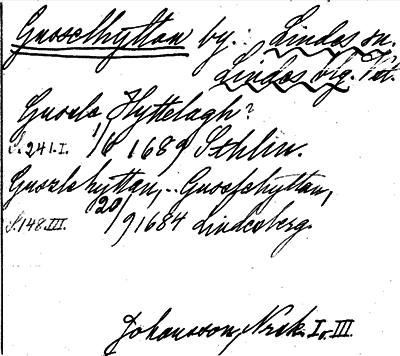 Gusselhyttan by. Lindes sn.
Lindes blg. Vm.
Gusela Hyttelagh?
S. 241. I. 1/8 1689 Sthlm.
Guszlehyttan, Gusselhyttan,
S. 148 III. 20/9 1684 Lindesberg.
Johansson, Nrak. I o. III.